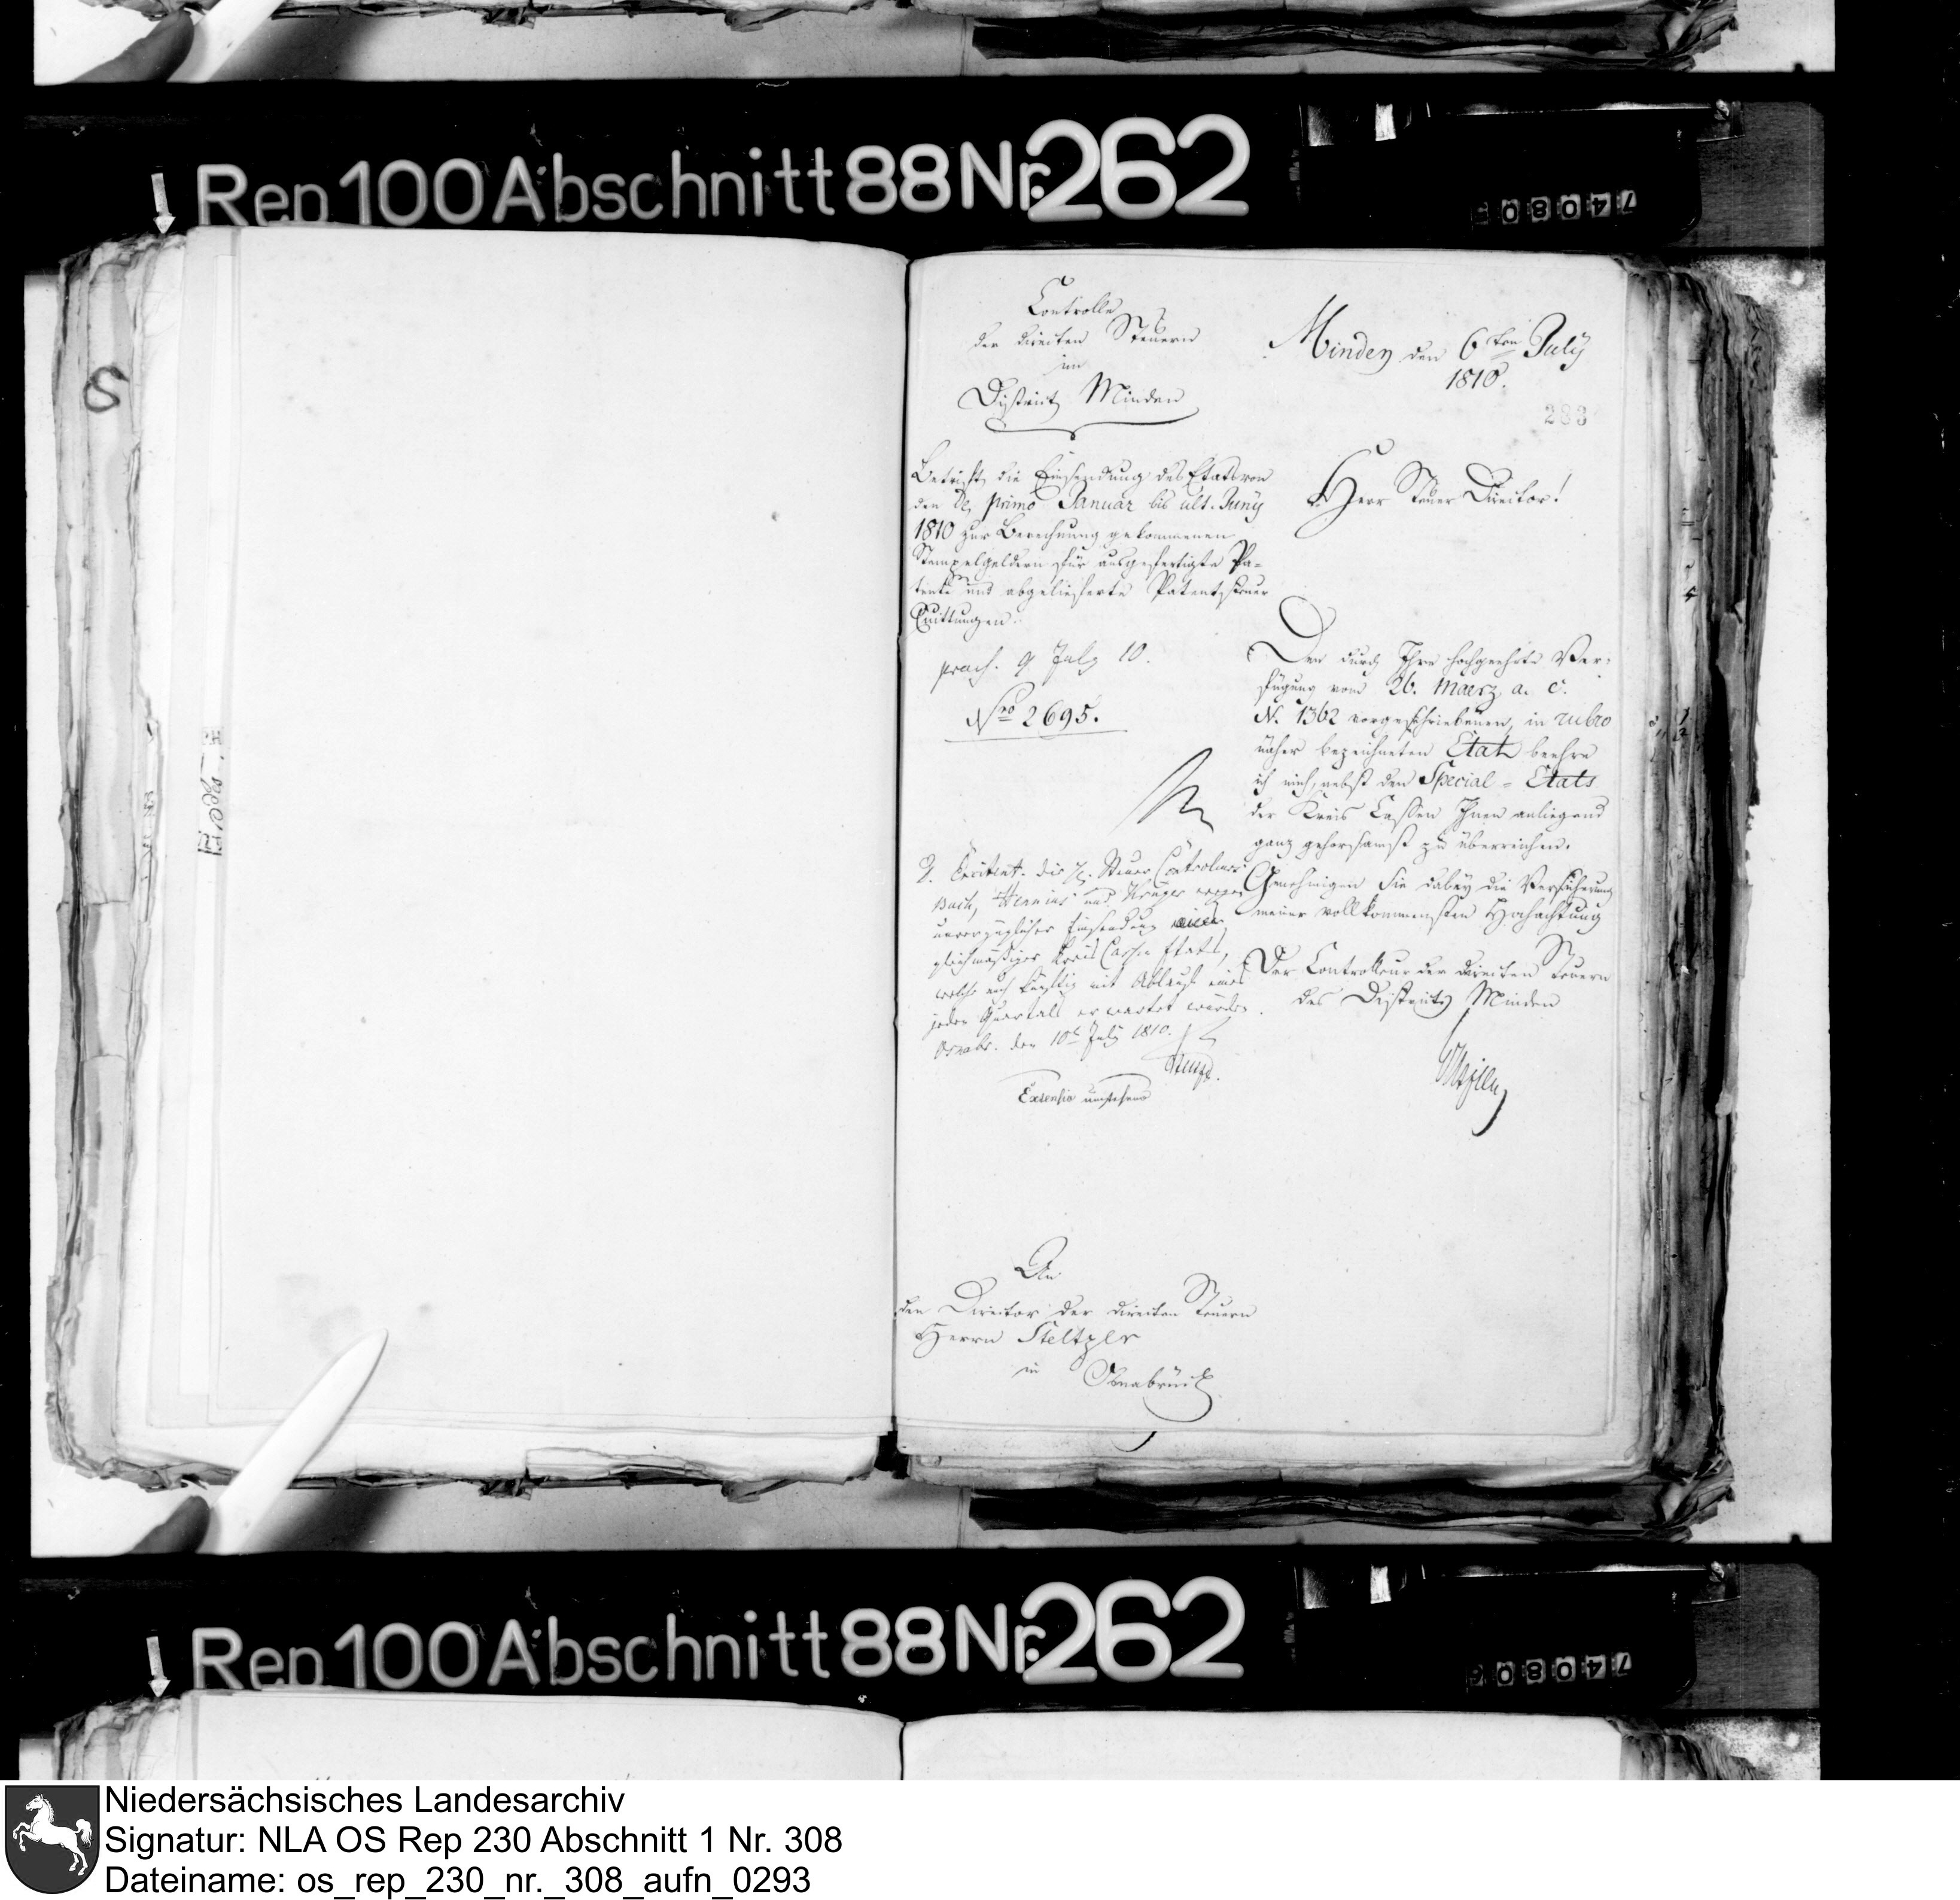 Rep 100 Abschnitt 88 Nr. 262
Controlle
der directen Steuern
im
District Minden
Minden den 6ten July
1810.
283
Betrifft die Einsendung des Etats von
den pl. primo Januar bis ult. Juny
1810 zur Berechnung gekommenen
Stempelgeldern für ausgefertigte Pa-
tente und abgelieferte Patentsteuer
Quittungen.
praes. 9 July 10.
Nro 2695.
Herr Steuer Director!
Den durch Ihre hochgeehrte Ver-
fügung vom 26. Maerz a. c.
N. 1362 vorgeschriebenen, in rubro
näher bezeichneten Etat beehre
ich mich, nebst den Special-Etats
der Kreis Cassen Ihnen anliegend
ganz gehorsamst zu überreichen.
Genehmigen Sie dabey die Versicherung
meiner vollkommensten Hochachtung
Der Controlleur der directen Steuern
des Districts Minden
Excitent. die Steuer Controleurs
Bach, Hennius und Krüger wegen
unverzüglicher Einsendung
gleichmäßiger Kreis Cassen Etats,
welche auch künftig mit Ablauf eines
jeden Quartals erwartet würden.
Osnabr. den 10t July 1810.
Extensio umstehend
An
den Director der directen Steuern
Herrn Steltzer
in Osnabrück
Rep 100 Abschnitt 88 Nr. 262
Niedersächsisches Landesarchiv
Signatur: NLA OS Rep 230 Abschnitt 1 Nr. 308
Dateiname: os_rep_230_nr._308_aufn_0293